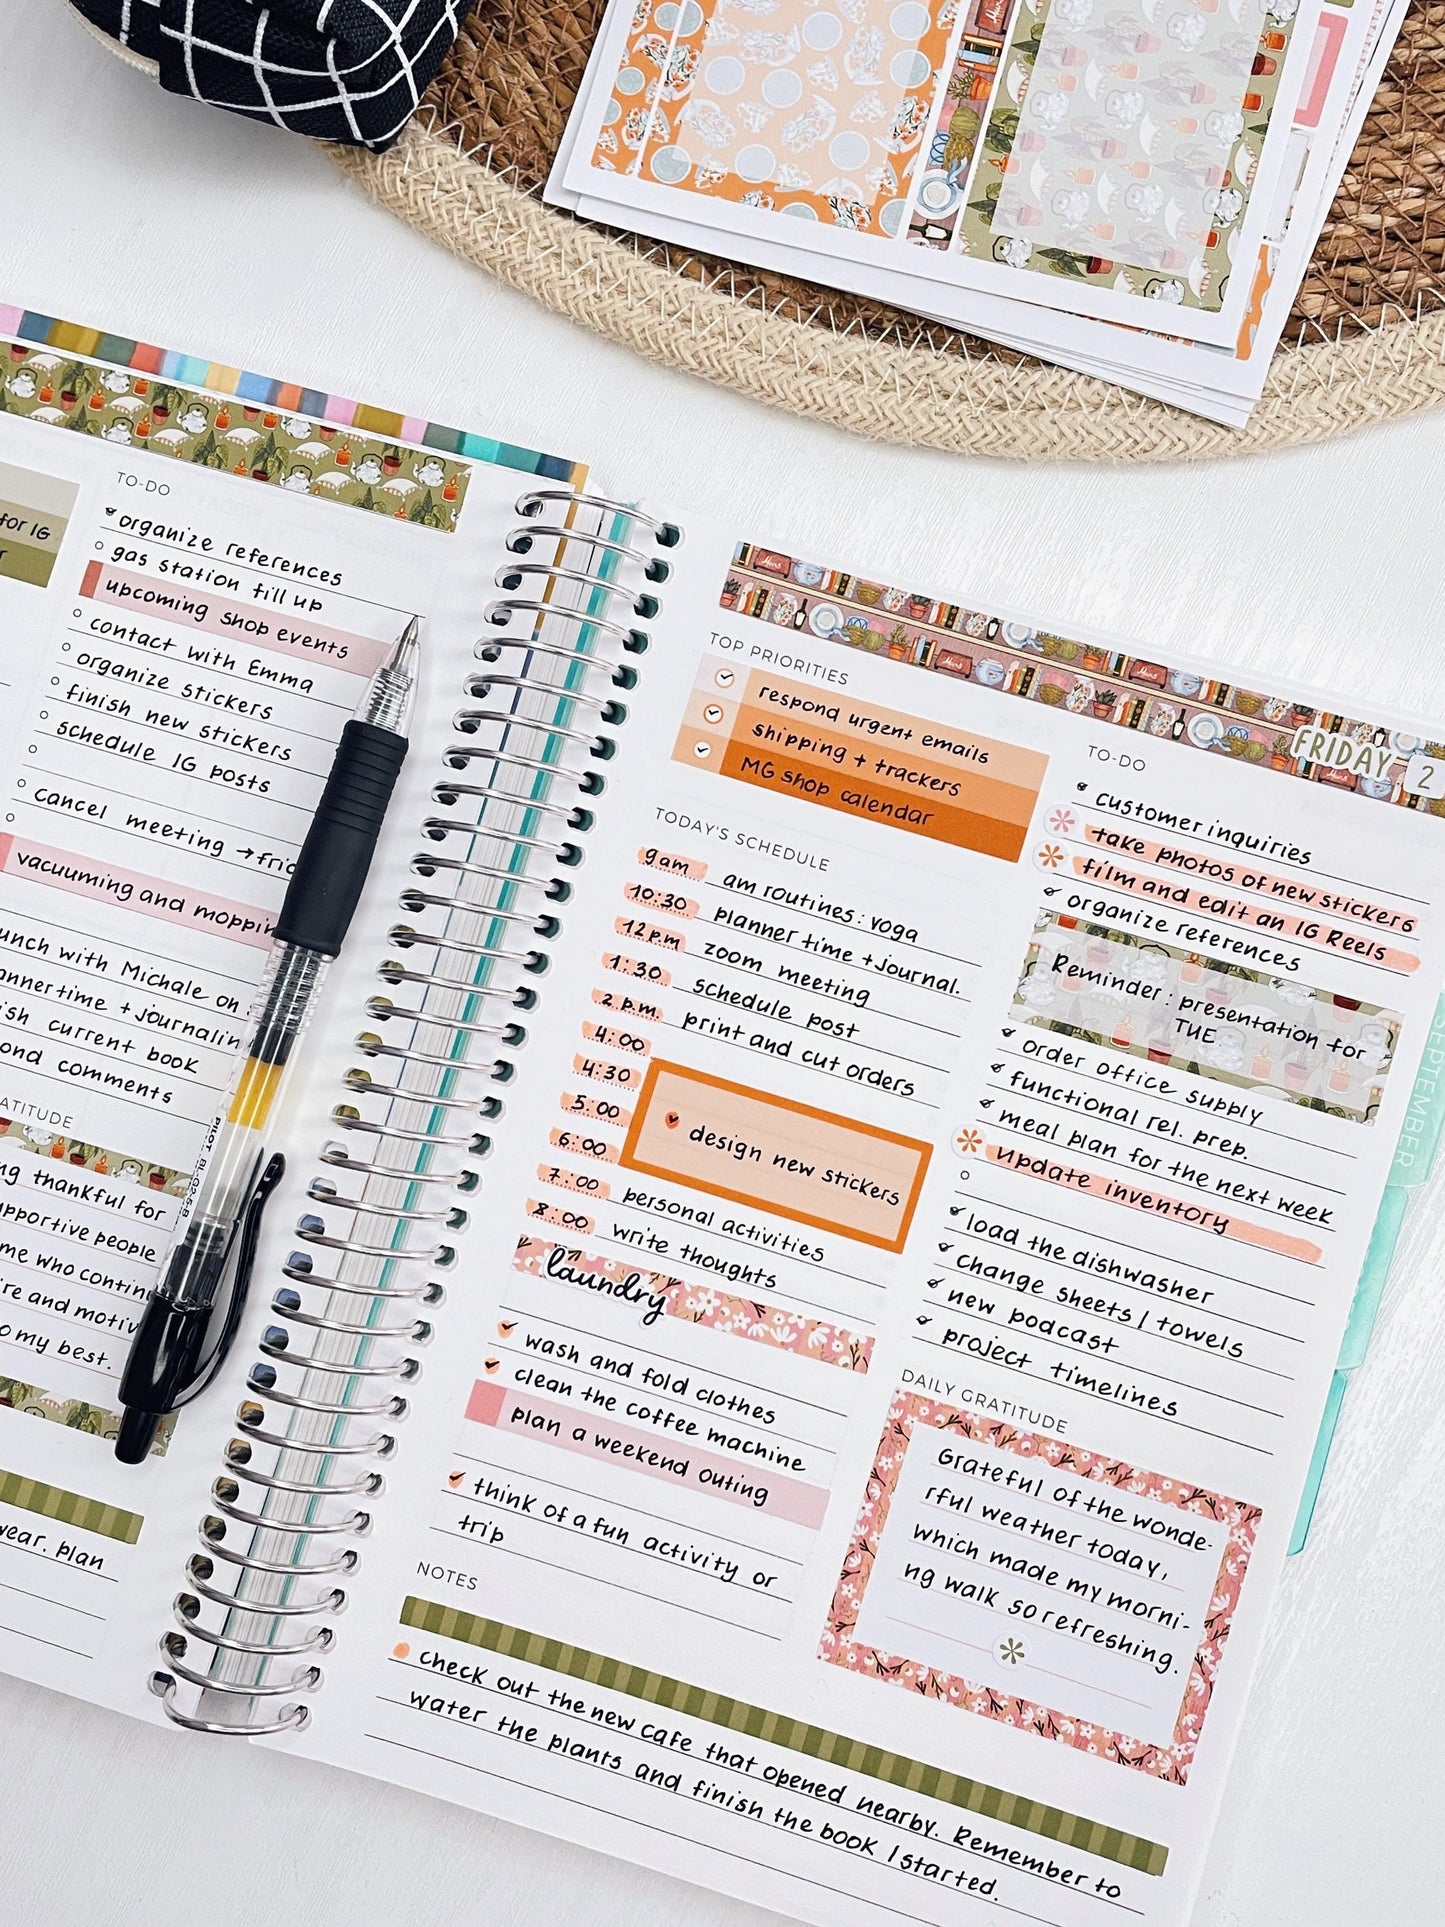 for IG
r
TO-DO
organize references
gas station fill up
upcoming shop events
contact with Emma
organize stickers
finish new stickers
schedule IG posts
cancel meeting → frid
vacuuming and moppin
unch with Michale on
anner time + journalin
ish current book
ond comments
ATITUDE
ng thankful for
upportive people
me who contin
re and motiv
o my best.
wear. plan
PILOT BL-G2-5-B
TOP PRIORITIES
respond urgent emails
shipping + trackers
MG shop calendar
TODAY'S SCHEDULE
9am am routines: yoga
10:30 planner time + journal.
12pm zoom meeting
1:30 schedule post
2 p.m. print and cut orders
4:00
4:30
5:00 design new stickers
6:00
7:00 personal activities
8:00 write thoughts
laundry
wash and fold clothes
clean the coffee machine
plan a weekend outing
think of a fun activity or
trip
NOTES
check out the new cafe that opened nearby. Remember to
water the plants and finish the book I started.
FRIDAY 2
TO-DO
customer inquiries
take photos of new stickers
film and edit an IG Reels
organize references
Reminder: presentation for
TUE
order office supply
functional rel. prep.
meal plan for the next week
update inventory
load the dishwasher
change sheets / towels
new podcast
project timelines
DAILY GRATITUDE
Grateful of the wonde-
rful weather today,
which made my morni-
ng walk so refreshing.
SEPTEMBER